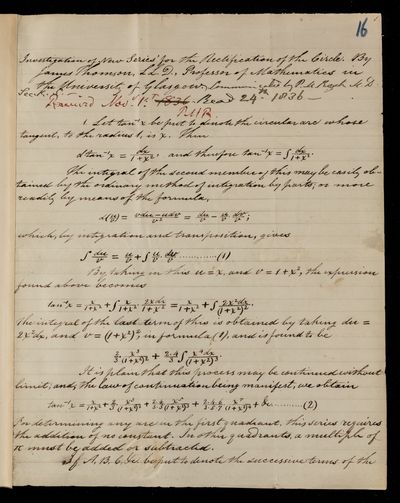 16
Investigation of New Series for the Rectification of the Circle. By
James Thomson, LL.D., Professor of Mathematics in
the University of Glasgow. Communicated by P. M. Roget M.D
Sec. R.S.
Received Nov. 1st 1836. Read 24th 1836 —
P.M.R.
1. Let tan⁻¹x be put to denote the circular arc whose
tangent, to the radius 1, is x. Then
d tan⁻¹x = dx/(1+x²), and therefore tan⁻¹x = ∫ dx/(1+x²).
The integral of the second member of this may be easily ob-
tained by the ordinary method of integration by parts, or more
readily by means of the formula,
d(u/v) = (vdu−udv)/v² = du/v − u/v · dv/v;
which, by integration and transposition, gives
∫ du/v = u/v + ∫ u/v · dv/v ............(1)
By taking in this u = x, and v = 1+x², the expression
found above becomes
tan⁻¹x = x/(1+x²) + ∫ x/(1+x²) · 2xdx/(1+x²) = x/(1+x²) + ∫ 2x²dx/(1+x²)².
The integral of the last term of this is obtained by taking du =
2x²dx, and v = (1+x²)², in formula (1), and is found to be
2/3 · x³/(1+x²)² + 2·4/3 ∫ x⁴dx/(1+x²)³.
It is plain that this process may be continued without
limit; and, the law of continuation being manifest, we obtain
tan⁻¹x = x/(1+x²) + 2/3 · x³/(1+x²)² + 2·4/3·5 · x⁵/(1+x²)³ + 2·4·6/3·5·7 · x⁷/(1+x²)⁴ + &c. .........(2)
For determining any arc in the first quadrant, this series requires
the addition of no constant. In other quadrants, a multiple of
π must be added or subtracted.
If A, B, C, &c. be put to denote the successive terms of the